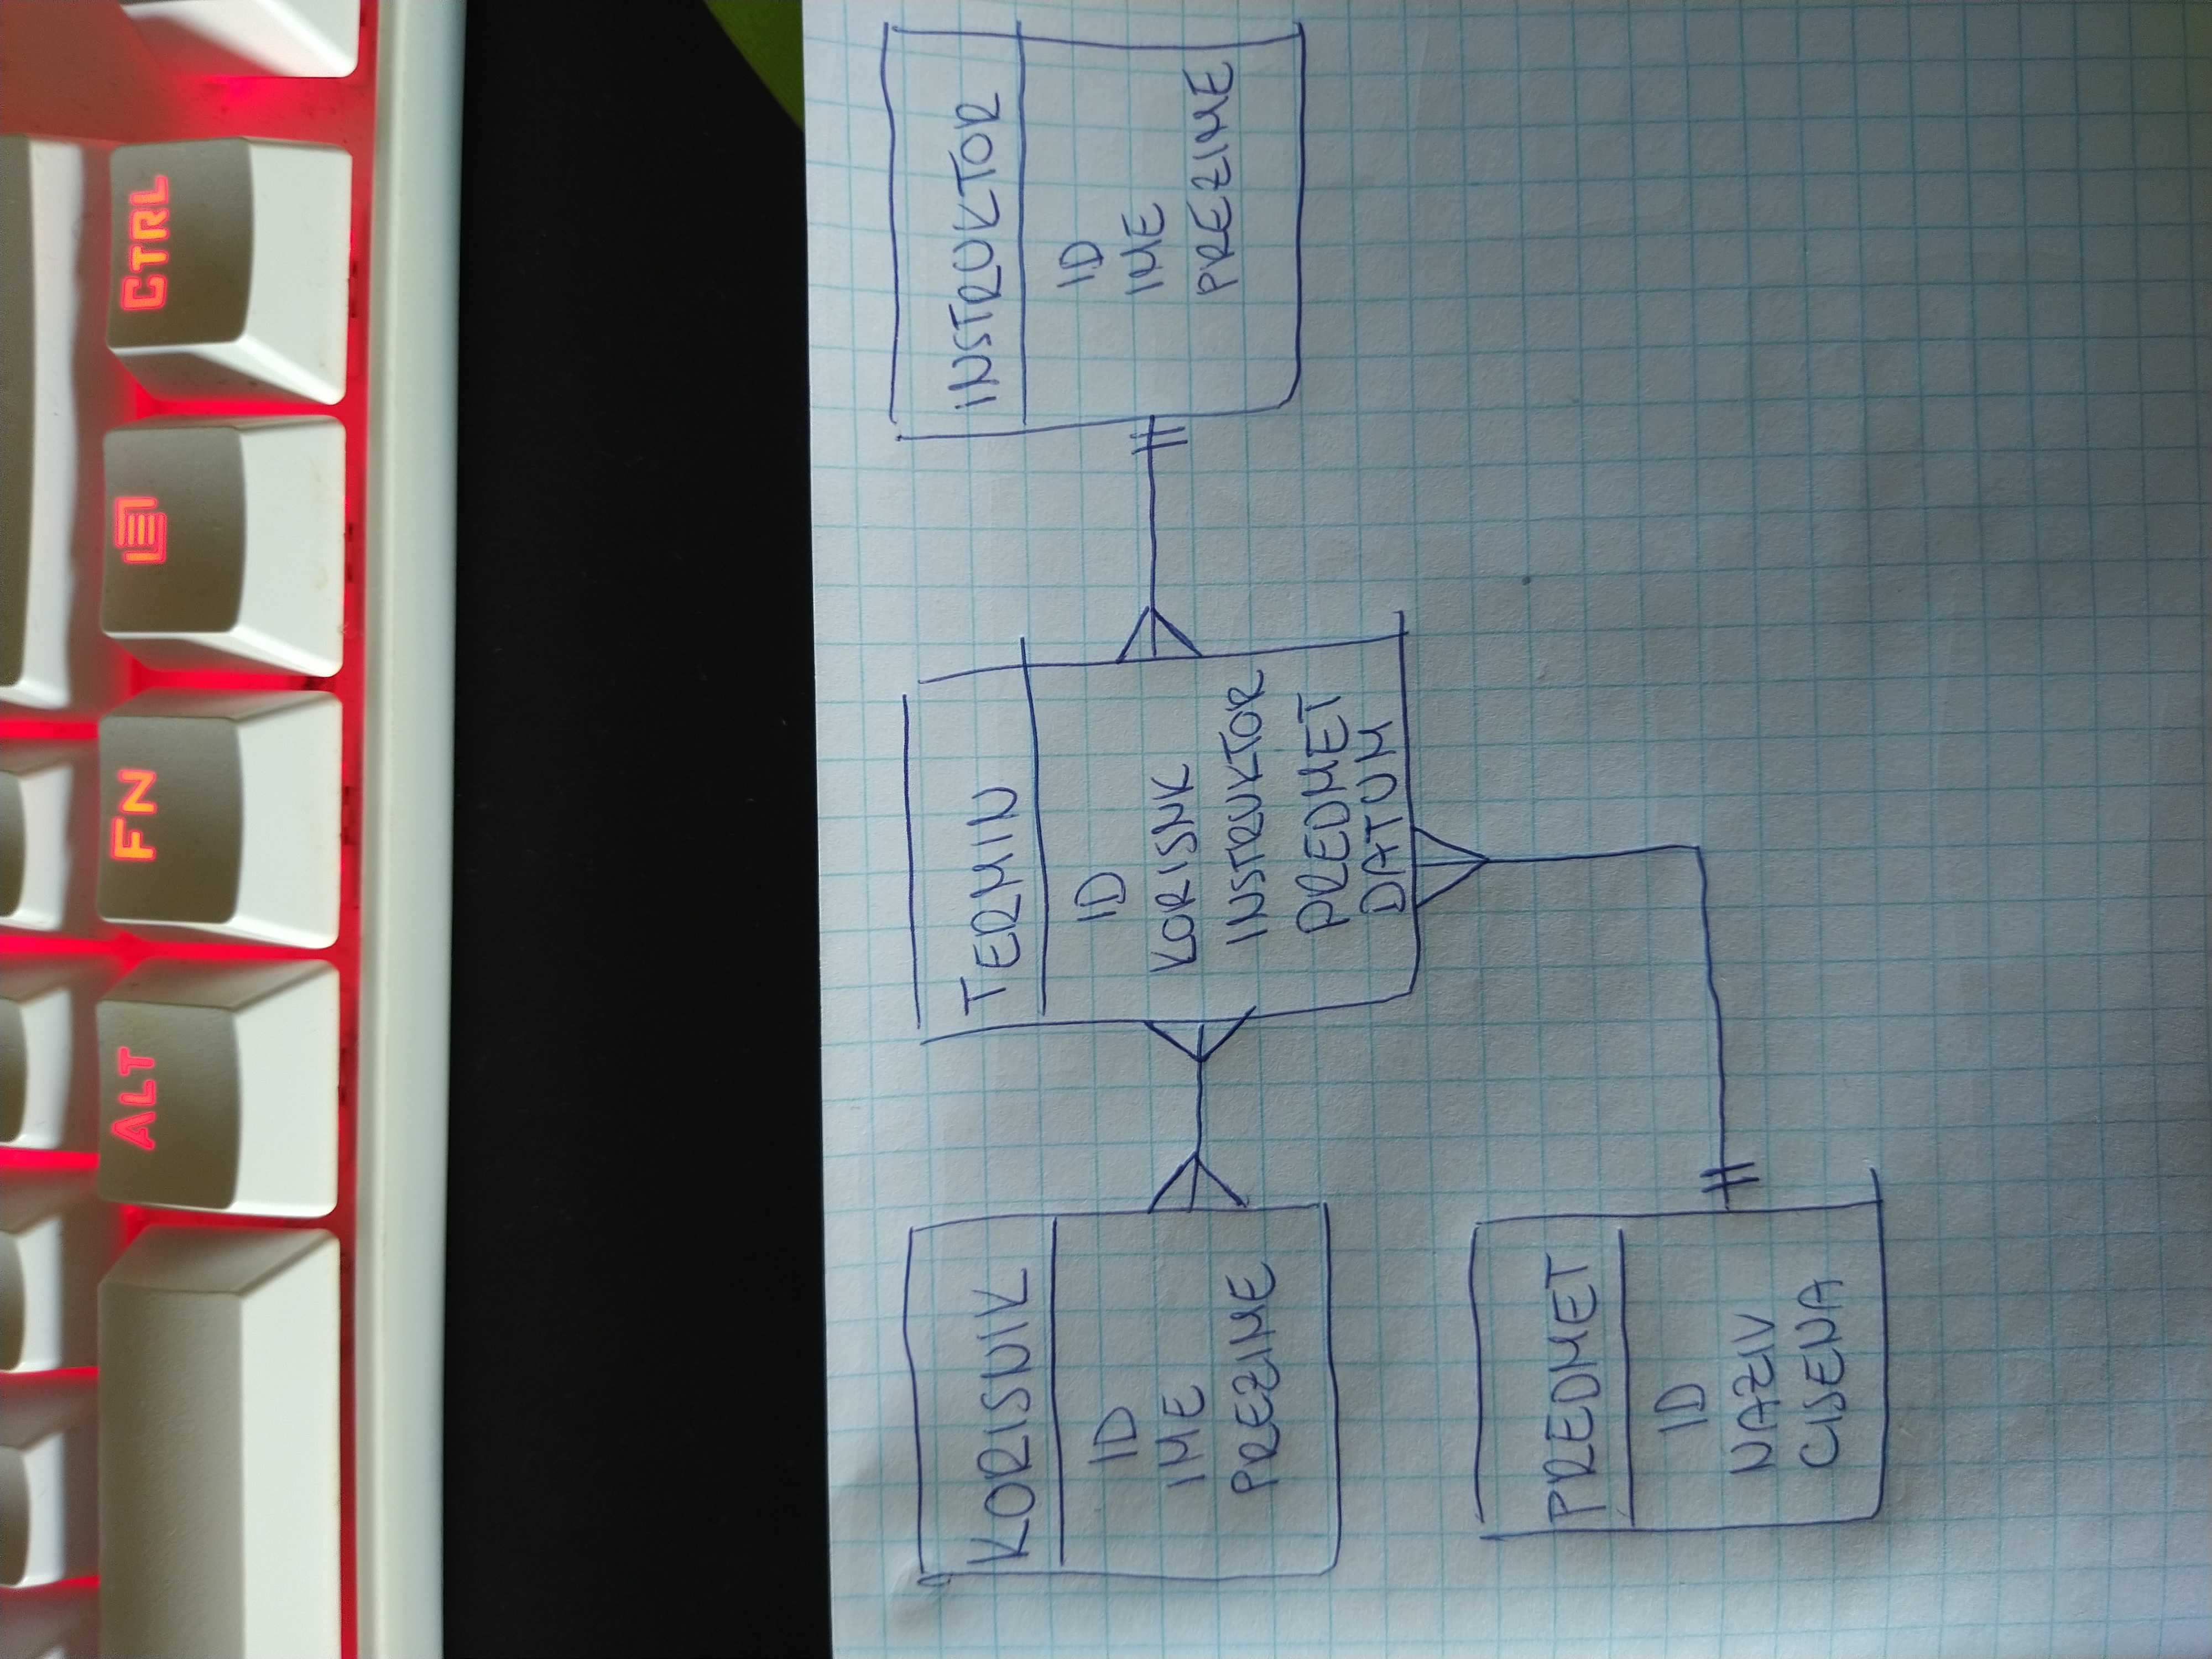 ALT FN CTRL
KORISNIK
ID
IME
PREZIME
TERMIN
ID
KORISNK
INSTRUKTOR
PREDMET
DATUM
INSTRUKTOR
ID
IME
PREZIME
PREDMET
ID
NAZIV
CIJENA